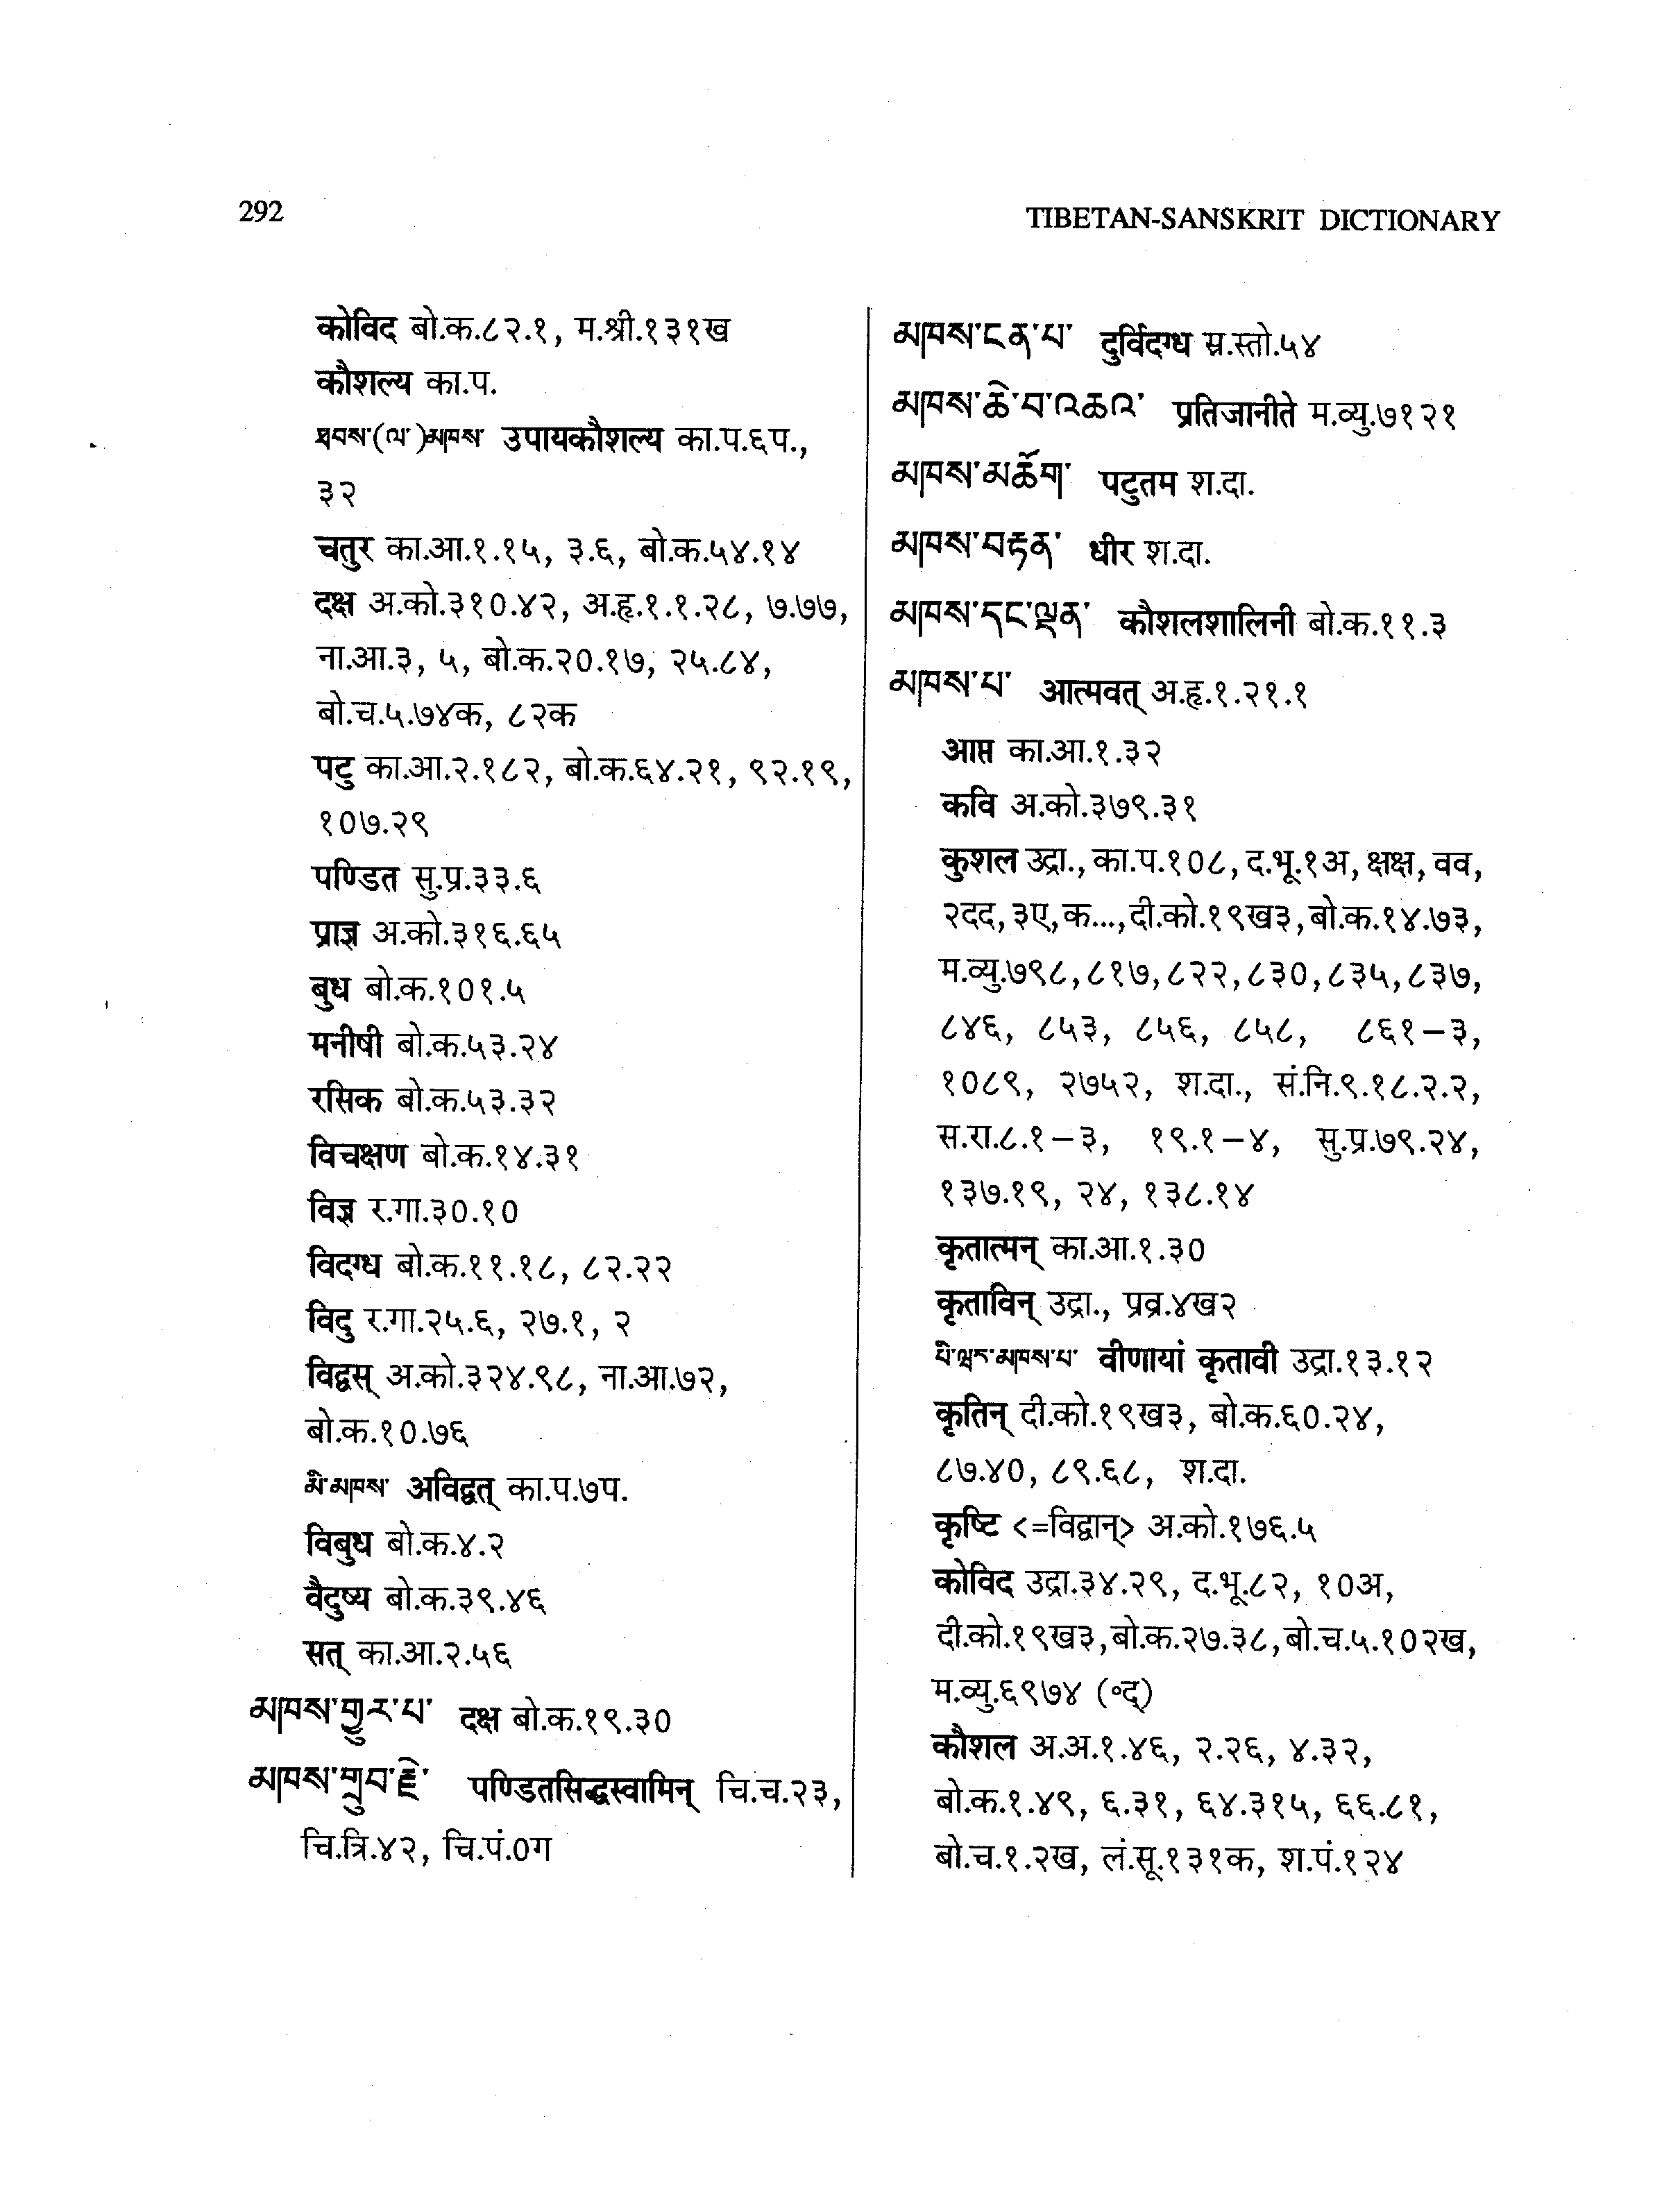 292
TIBETAN-SANSKRIT DICTIONARY
कोविद बो.क.८२.१, म.श्री.१३१ख
कौशल्य का.प.
ཐབས་(ལ་)མཁས་ उपायकौशल्य का.प.६प.,
३२
चतुर का.आ.१.१५, ३.६, बो.क.५४.१४
दक्ष अ.को.३१०.४२, अ.हृ.१.१.२८, ७.७७,
ना.आ.३, ५, बो.क.२०.१७, २५.८४,
बो.च.५.७४क, ८२क
पटु का.आ.२.१८२, बो.क.६४.२१, ९२.१९,
१०७.२९
पण्डित सु.प्र.३३.६
प्राज्ञ अ.को.३१६.६५
बुध बो.क.१०१.५
मनीषी बो.क.५३.२४
रसिक बो.क.५३.३२
विचक्षण बो.क.१४.३१
विज्ञ र.गा.३०.१०
विदग्ध बो.क.११.१८, ८२.२२
विदु र.गा.२५.६, २७.१, २
विद्वस् अ.को.३२४.९८, ना.आ.७२,
बो.क.१०.७६
མི་མཁས་ अविद्वत् का.प.७प.
विबुध बो.क.४.२
वैदुष्य बो.क.३९.४६
सत् का.आ.२.५६
མཁས་གྱུར་པ་ दक्ष बो.क.१९.३०
མཁས་གྲུབ་རྗེ་ पण्डितसिद्धस्वामिन् चि.च.२३,
चि.त्रि.४२, चि.पं.०ग
མཁས་ངན་པ་ दुर्विदग्ध स्र.स्तो.५४
མཁས་ཆེ་བ་འཆའ་ प्रतिजानीते म.व्यु.७१२१
མཁས་མཆོག་ पटुतम श.दा.
མཁས་བརྟན་ धीर श.दा.
མཁས་དང་ལྡན་ कौशलशालिनी बो.क.११.३
མཁས་པ་ आत्मवत् अ.हृ.१.२१.१
आप्त का.आ.१.३२
कवि अ.को.३७९.३१
कुशल उद्रा., का.प.१०८, द.भू.१अ, क्षक्ष, वव,
२दद, ३ए, क..., दी.को.१९ख३, बो.क.१४.७३,
म.व्यु.७९८, ८१७, ८२२, ८३०, ८३५, ८३७,
८४६, ८५३, ८५६, ८५८, ८६१–३,
१०८९, २७५२, श.दा., सं.नि.९.१८.२.२,
स.रा.८.१–३, १९.१–४, सु.प्र.७९.२४,
१३७.१९, २४, १३८.१४
कृतात्मन् का.आ.१.३०
कृताविन् उद्रा., प्रव्र.४ख२
པི་ཝཾར་མཁས་པ་ वीणायां कृतावी उद्रा.१३.१२
कृतिन् दी.को.१९ख३, बो.क.६०.२४,
८७.४०, ८९.६८, श.दा.
कृष्टि <=विद्वान्> अ.को.१७६.५
कोविद उद्रा.३४.२९, द.भू.८२, १०अ,
दी.को.१९ख३, बो.क.२७.३८, बो.च.५.१०२ख,
म.व्यु.६९७४ (॰द्)
कौशल अ.अ.१.४६, २.२६, ४.३२,
बो.क.१.४९, ६.३१, ६४.३१५, ६६.८१,
बो.च.१.२ख, लं.सू.१३१क, श.पं.१२४